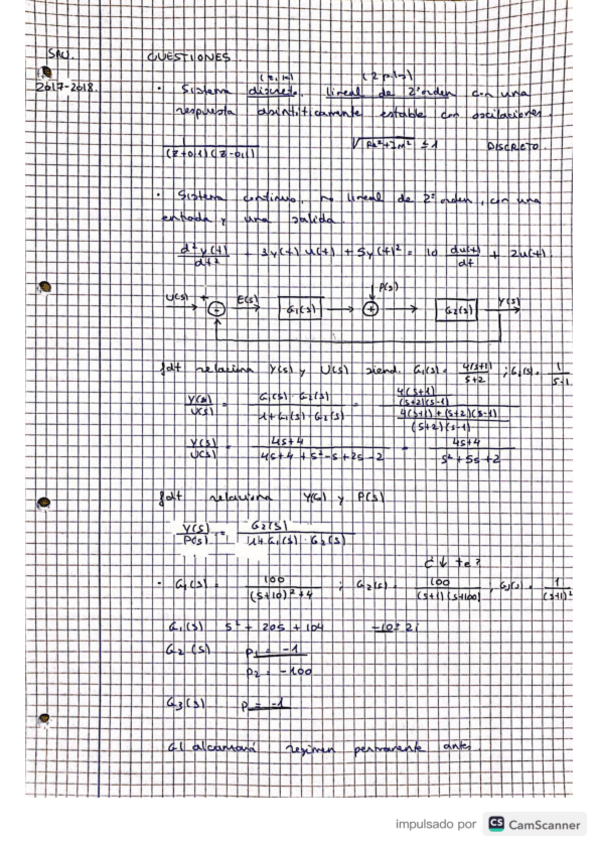 SAU.
2017-2018.
CUESTIONES
(z, k) (2 polos)
· Sistema discreto, lineal de 2º orden con una
respuesta asintóticamente estable con oscilaciones.
1 / (z+0,1)(z-0,1) √Re²+Im² ≤ 1 DISCRETO.
· Sistema continuo, no lineal de 2º orden, con una
entrada y una salida.
d²y(t)/dt² - 3y(t)u(t) + 5y(t)² = 10 du(t)/dt + 2u(t).
U(s) + - E(s) G1(s) P(s) + G2(s) Y(s)
fdt relaciona Y(s) y U(s) siend. G1(s) = 4(s+1)/s+2 ; G2(s) = 1/s-1
Y(s)/U(s) = G1(s)·G2(s) / 1+G1(s)·G2(s) = 4(s+1)/(s+2)(s-1) / 4(s+1)+(s+2)(s-1)/(s+2)(s-1)
Y(s)/U(s) = 4s+4 / 4s+4+s²-s+2s-2 = 4s+4 / s²+5s+2
fdt relaciona Y(s) y P(s)
Y(s)/P(s) = G2(s) / 1+G1(s)·G2(s)
¿↓ te?
· G1(s) = 100/(s+10)²+4 ; G2(s) = 100/(s+1)(s+100) ; G3(s) = 1/(s+1)²
G1(s) s²+20s+104 -10±2i
G2(s) p1 = -1
p2 = -100
G3(s) p = -1
G1 alcanzará régimen permanente antes.
impulsado por CS CamScanner